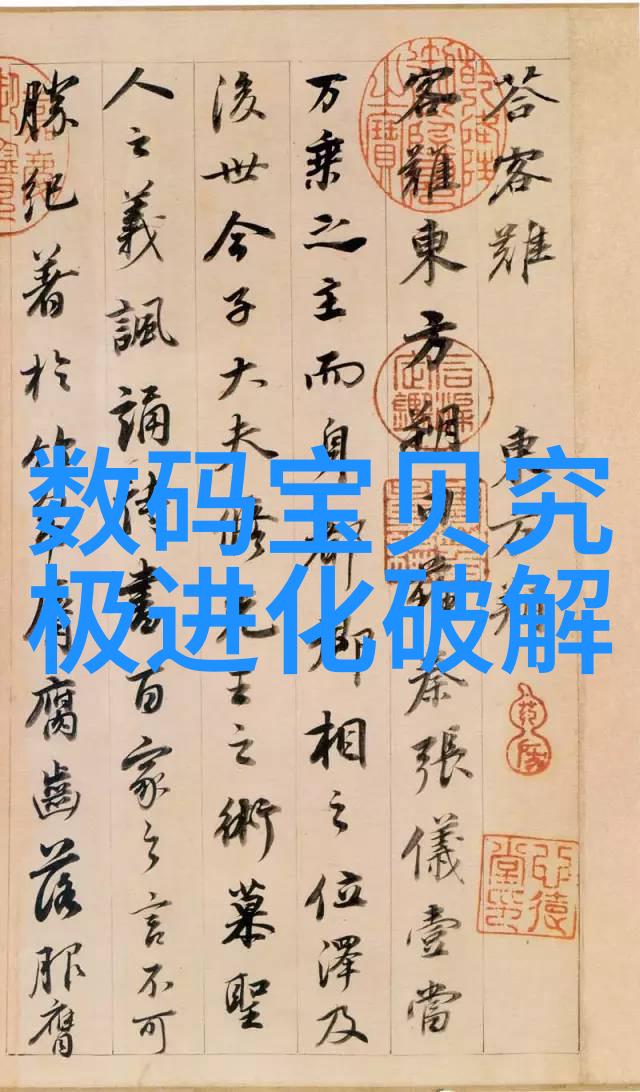 数码宝贝究
极进化破解
荅客難 東方朔
客難東方朔曰蘇秦張儀壹當
万乗之主而身都卿相之位澤及
後世今子大夫脩先王之術慕聖
人之義諷誦詩書百家之言不可
勝紀著於竹帛脣腐齒落服膺